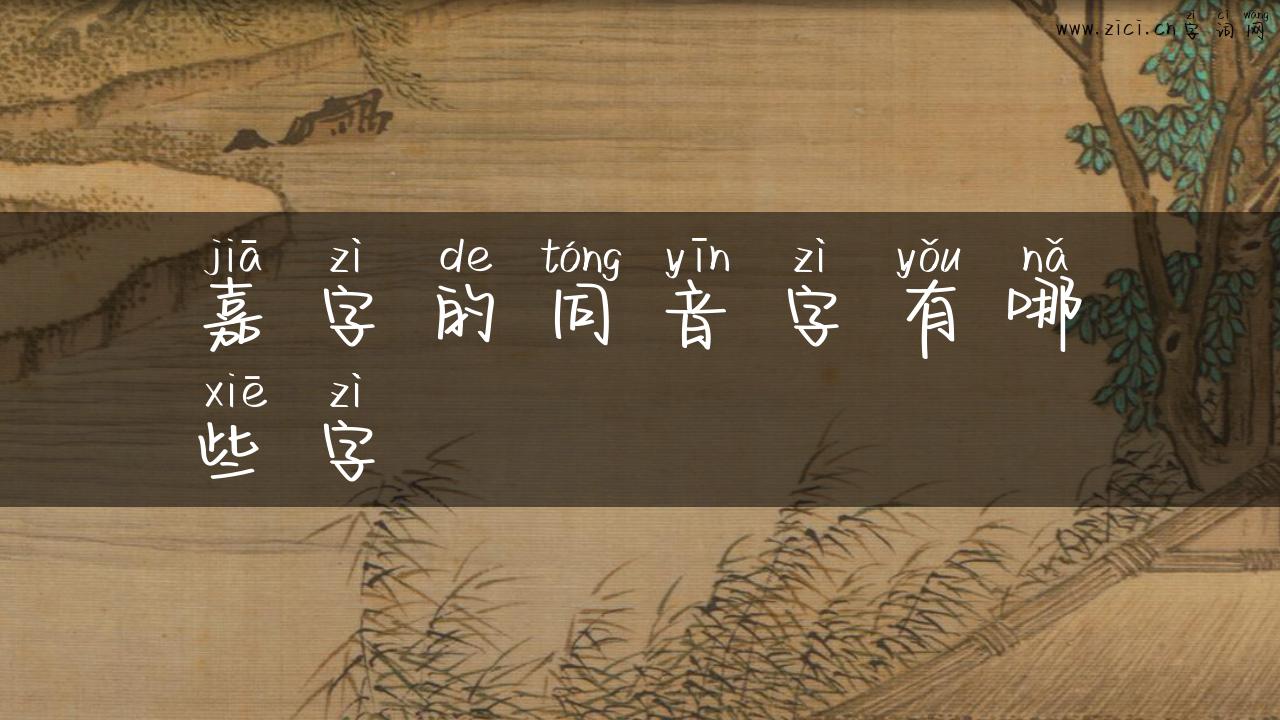 zì cí wǎng
www.zici.cn字词网
jiā zì de tóng yīn zì yǒu nǎ
嘉字的同音字有哪
xiē zì
些字